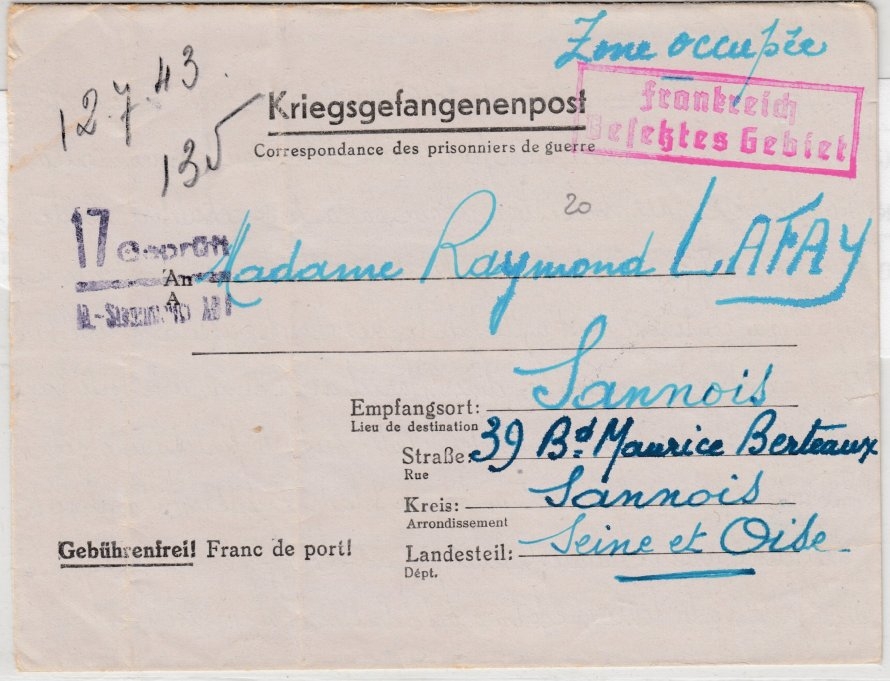 Zone occupée
12.7.43.
135
Kriegsgefangenenpost
Correspondance des prisonniers de guerre
Frankreich
Besetztes Gebiet
20
17 Geprüft
An Madame Raymond LAFAY
A
Empfangsort: Sannois
Lieu de destination
Straße: 39 Bd. Maurice Berteaux
Rue
Kreis: Sannois
Arrondissement
Gebührenfrei! Franc de port!
Landesteil: Seine et Oise
Dépt.